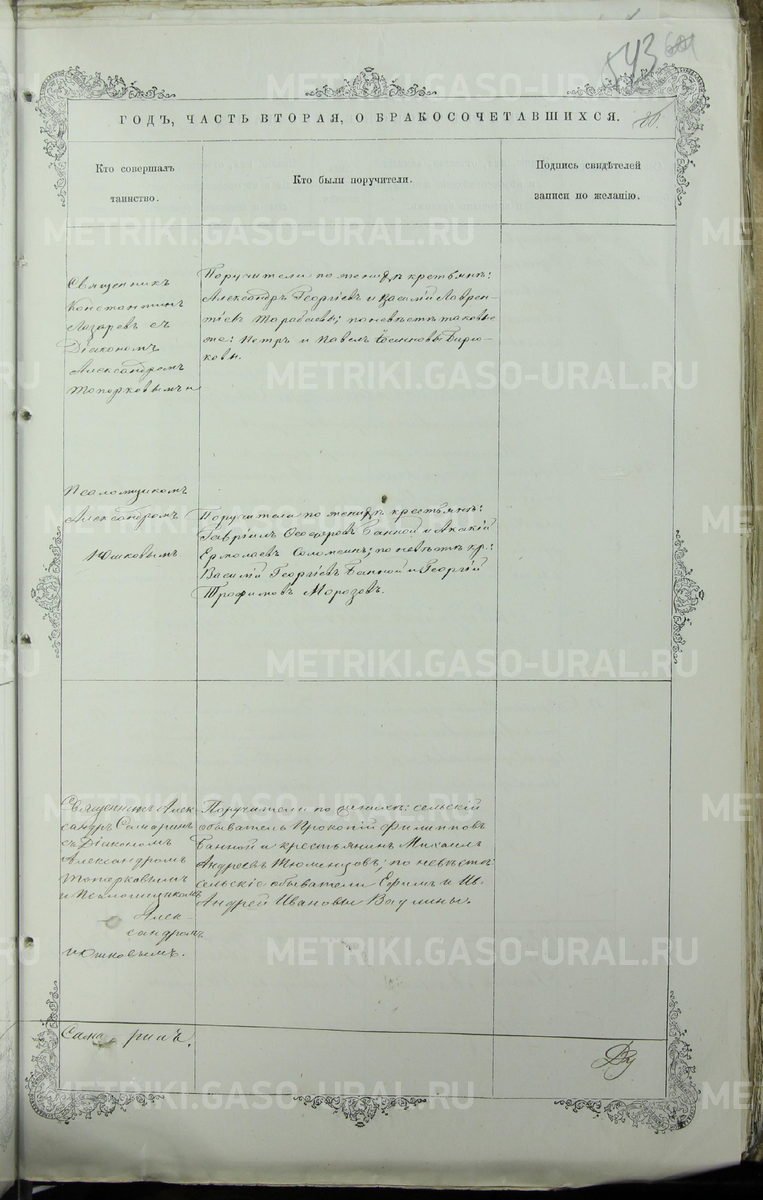 543
ГОДЪ, ЧАСТЬ ВТОРАЯ, О БРАКОСОЧЕТАВШИХСЯ.
Кто совершалъ
таинство.
Кто были поручители.
Подпись свидѣтелей
записи по желанію.
Священникъ
Константинъ
Лазаревъ съ
Діакономъ
Александромъ
Топорковымъ и
Поручители по женихѣ крестьяне:
Александръ Георгіевъ и Василій Лаврен-
тіевъ Тарабаевы; по невѣстѣ таковые
же: Петръ и Павелъ Бирю-
ковы.
Псаломщикомъ
Александромъ
Юшковымъ
Поручители по женихѣ крестьяне:
Гавріилъ Банной и Акакій
Ермолаевъ по невѣстѣ кр:
Василій Георгіевъ Банной и Георгій
Трофимовъ Морозовъ.
Священникъ Алек-
сандръ Самаринъ
съ Діакономъ
Александромъ
Топорковымъ
и Псаломщикомъ
Алек-
сандромъ
Юшковымъ.
Поручители по женихѣ: сельскій
обыватель Прокопій Филипповъ
Банной и крестьянинъ Михаилъ
Андреевъ Тюменцовъ; по невѣстѣ:
сельскіе обыватели Ефимъ и
Андрей Ивановы Ваулины.
Самаринъ.
METRIKI.GASO-URAL.RU